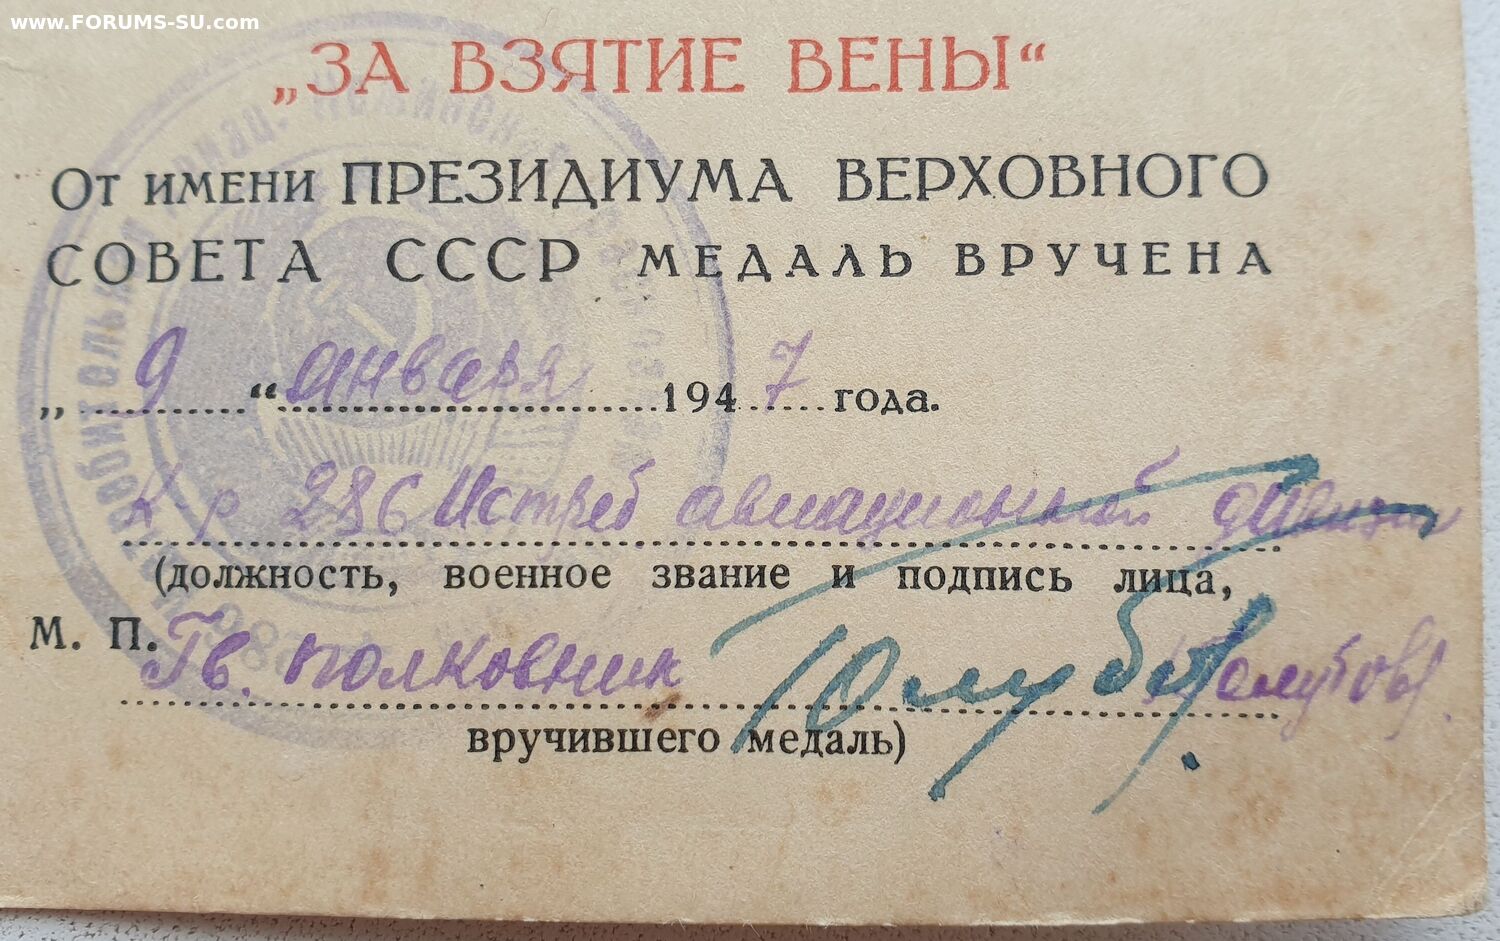 www.FORUMS-SU.com
„ЗА ВЗЯТИЕ ВЕНЫ“
От имени ПРЕЗИДИУМА ВЕРХОВНОГО
СОВЕТА СССР МЕДАЛЬ ВРУЧЕНА
„ 9 “ января 1947 года.
К-р 286 Истреб авиационной дивизии
(должность, военное звание и подпись лица,
М. П. Гв. полковник Голубов
вручившего медаль)